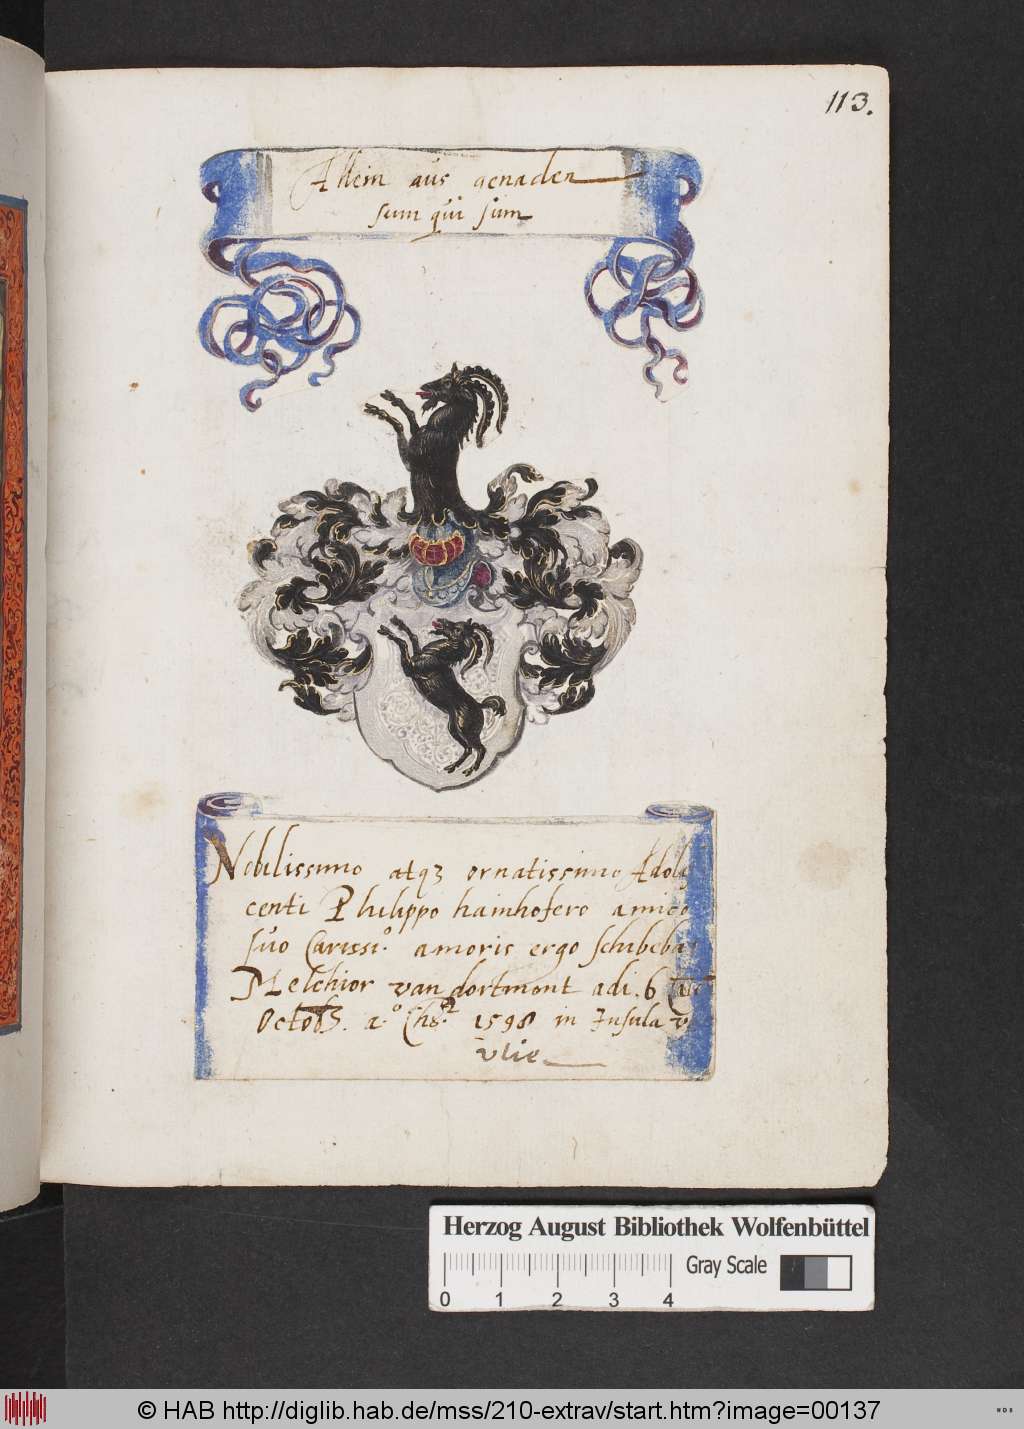 113.
Allein aus genaden
sum qui sum
Nobilissimo atqꝫ ornatissimo Adoles
centi Philippo hainhofero amico
suo Carissi.º amoris ergo schibeba
Melchior van dortmont adi. 6
Octobȝ. a.º Chȓ. 1598 in Insula v
vlie
Herzog August Bibliothek Wolfenbüttel
Gray Scale
0 1 2 3 4
© HAB http://diglib.hab.de/mss/210-extrav/start.htm?image=00137